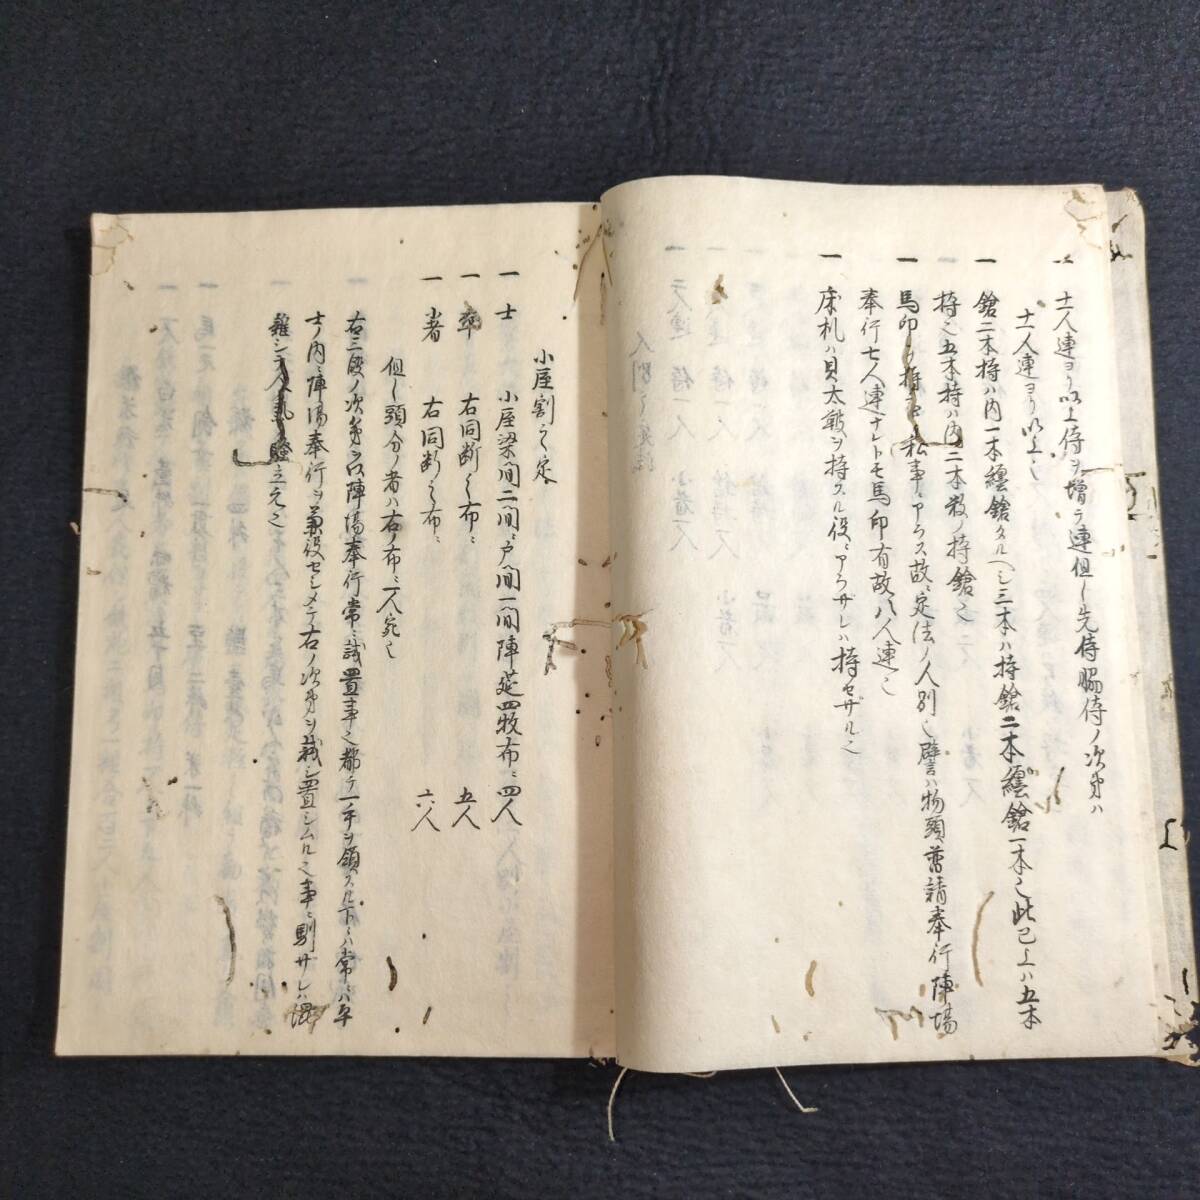 一 十一人連ヨリ以上侍ヲ増テ連但シ先侍脇侍ノ次第ハ
十一人連ヨリ以上之
一 鎗二本持ハ内一本纏鎗タルヘシ三本ハ持鎗二本纏鎗一本之此已上ハ五本
持之五本持ハ内二本数ノ持鎗之
一 馬印ヲ持 私事ニアラス故ニ定法ノ人別之譬ハ物頭普請奉行陣場
奉行七人連ナレトモ馬印有故八人連之
一 床札ハ貝太鼓ヲ持スル役ニアラザレハ持セザル之
小屋割之定
一 士 小屋梁間二間ニ戸間一間陣莚四牧布ニ四人
一 卒 右同断之布ニ 五人
一 者 右同断之布ニ 六人
但シ頭分ノ者ハ右ノ布ニ一人宛之
右三段ノ次第ヲ以陣場奉行常ニ試置事之都テ一手ヲ領スル下ニハ常ニハ平
士ノ内ニ陣場奉行ヲ兼役セシメテ右ノ次第ヲ試ニ置シムル之事ニ馴ザレハ混
雑シテ人気騒立元之